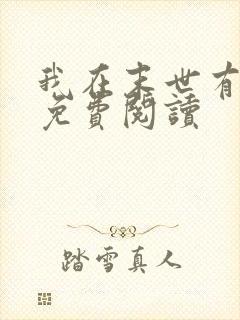 我在末世有
免費閱讀
踏雪真人